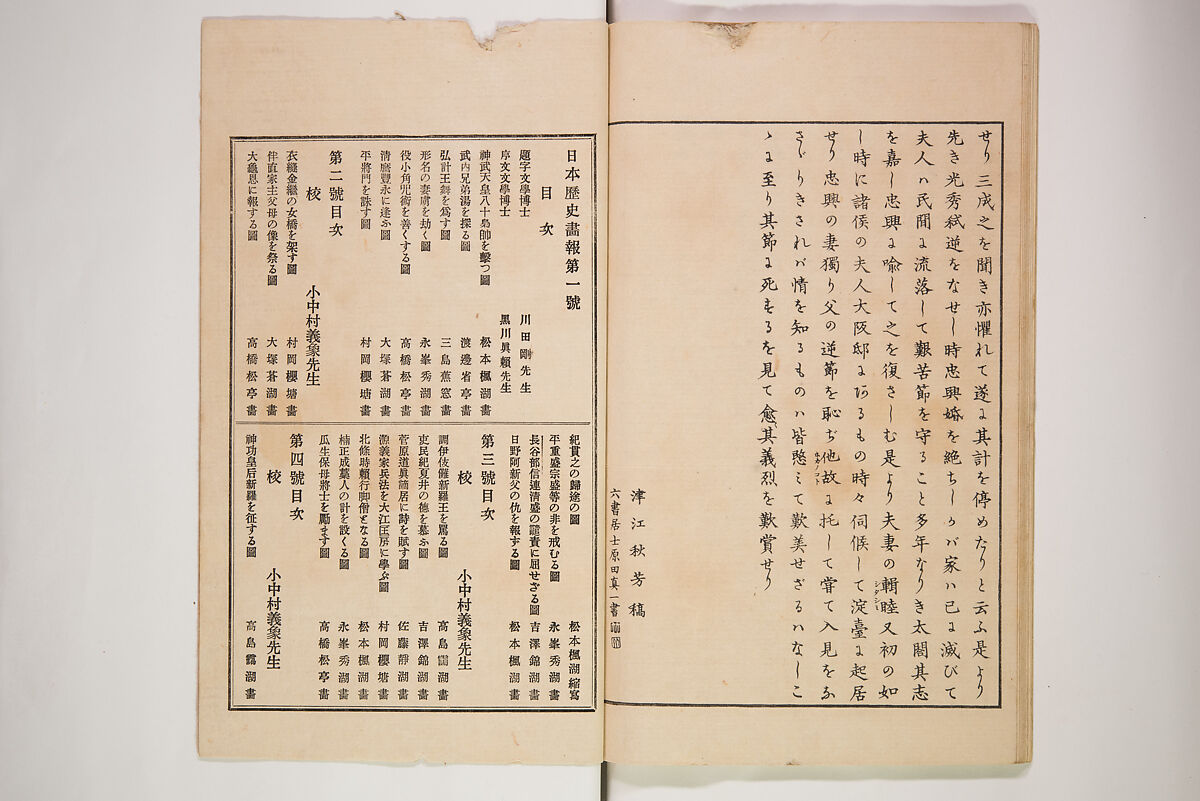 せり三成之を聞き亦懼れて遂に其計を停めたりと云ふ是より
先き光秀弑逆をなせし時忠興婚を絶ちしかバ家ハ已に滅びて
夫人ハ民間に流落して艱苦節を守ること多年なりき太閤其志
を嘉し忠興に喩して之を復さしむ是より夫妻の輯睦又初の如
シタシミ
し時に諸侯の夫人大阪邸にあるもの時々伺候して淀臺に起居
せり忠興の妻獨り父の逆節を恥ぢ他故に托して嘗て入見をな
さゞりきされバ情を知るものハ皆愍みて歎美せざるハなしこ
ゝに至り其節に死するを見て愈其義烈を歎賞せり
津江秋芳稿
六書居士原田真一書
日本歷史畵報第一號
目次
題字文學博士 川田剛先生
序文文學博士 黑川眞賴先生
神武天皇八十梟帥を擊つ圖 松本楓湖畵
武內兄弟湯を探る圖 渡邊省亭畵
弘計王舞を爲す圖 三島蕉窓畵
形名の妻虜を劫く圖 永峯秀湖畵
役小角咒術を善くする圖 高橋松亭畵
淸麿豐永に逢ふ圖 大塚蒼湖畵
平將門を誅す圖 村岡櫻塘畵
第二號目次
校 小中村義象先生
衣縫金繼の女橋を架す圖 村岡櫻塘畵
伴直家主父母の像を祭る圖 大塚蒼湖畵
大龜恩に報する圖 高橋松亭畵
紀貫之の歸途の圖 松本楓湖縮寫
平重盛宗盛等の非を戒むる圖 永峯秀湖畵
長谷部信連淸盛の譴責に屈せざる圖 吉澤錦湖畵
日野阿新父の仇を報ずる圖 松本楓湖畵
第三號目次
校 小中村義象先生
調伊伎儺新羅王を罵る圖 高島靄湖畵
吏民紀夏井の德を慕ふ圖 吉澤錦湖畵
菅原道眞謫居に詩を賦す圖 佐藤靜湖畵
源義家兵法を大江匡房に學ぶ圖 村岡櫻塘畵
北條時賴行脚僧となる圖 松本楓湖畵
楠正成藁人の計を設くる圖 永峯秀湖畵
瓜生保母將士を勵ます圖 高橋松亭畵
第四號目次
校 小中村義象先生
神功皇后新羅を征する圖 高島靄湖畵